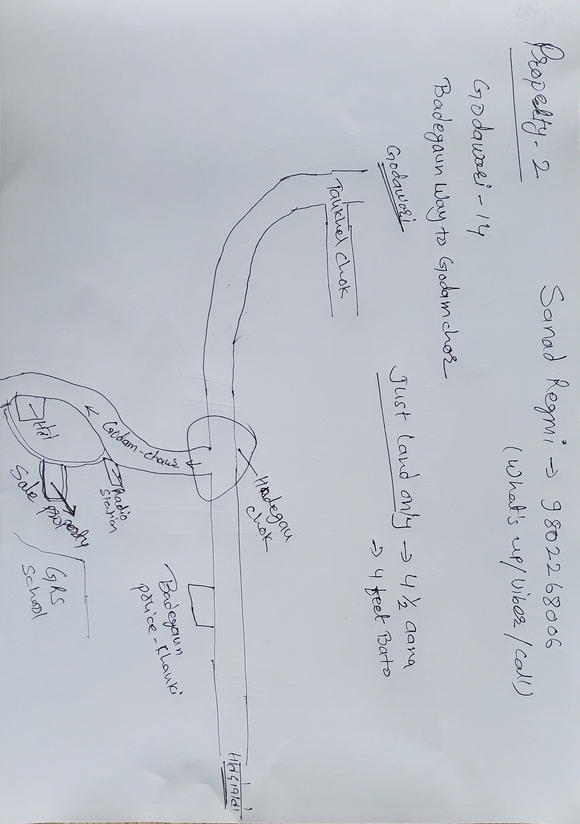 Property-2
Sanad Regmi → 9802268006
(What's up/Viber/call)
Godawari-14
Badegaun Way to Godamchor
Just Land only → 4 1/2 aana
→ 4 feet Bato
Godawari
Taukhel Chok
Badegau
chok
Godam-chaur
Radio
Station
Hotel
Sale
GRS
School
Badegaun
police-Khauki